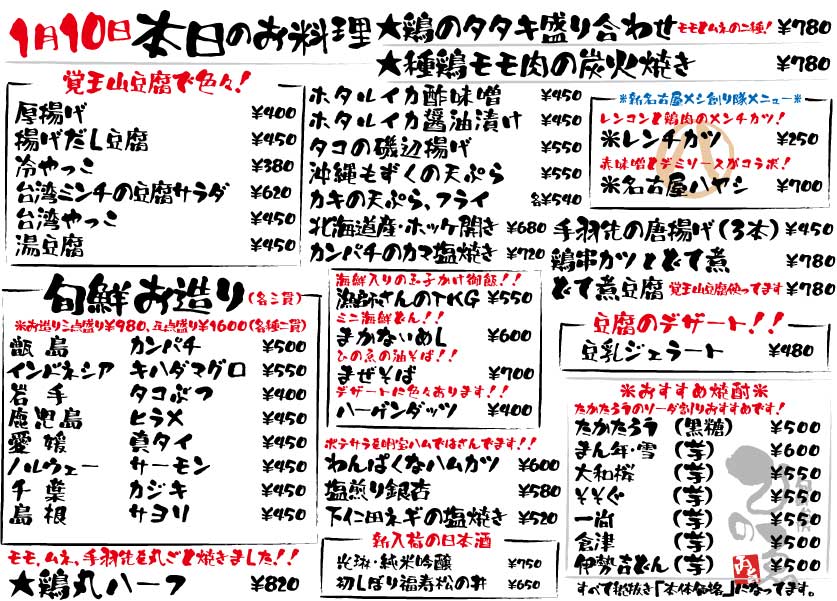 1月10日 本日のお料理
★鶏のタタキ盛り合わせ モモとムネの二種! ¥780
★種鶏モモ肉の炭火焼き ¥780
覚王山豆腐で色々!
厚揚げ ¥400
揚げだし豆腐 ¥450
冷やっこ ¥380
台湾ミンチの豆腐サラダ ¥620
台湾やっこ ¥450
湯豆腐 ¥450
ホタルイカ酢味噌 ¥450
ホタルイカ醤油漬け ¥450
タコの磯辺揚げ ¥550
沖縄もずくの天ぷら ¥550
カキの天ぷら、フライ 各¥540
北海道産・ホッケ開き ¥680
カンパチのカマ塩焼き ¥720
※新名古屋メシ創り隊メニュー※
レンコンと鶏肉のメンチカツ!
※レンチカツ ¥250
赤味噌とデミソースがコラボ!
※名古屋ハヤシ ¥700
手羽先の唐揚げ(3本) ¥450
鶏串カツとどて煮 ¥780
どて煮豆腐 覚王山豆腐使ってます ¥780
旬鮮お造り(各三貫)
※お造り三点盛り¥980、五点盛り¥1600(各種二貫)
甑島 カンパチ ¥500
インドネシア キハダマグロ ¥550
岩手 タコぶつ ¥400
鹿児島 ヒラメ ¥450
愛媛 真タイ ¥450
ノルウェー サーモン ¥450
千葉 カジキ ¥450
島根 サヨリ ¥450
海鮮入りの玉子かけ御飯!!
漁師さんのTKG ¥550
ミニ海鮮どん!!
まかないめし ¥600
ひの気の油そば!!
まぜそば ¥700
デザートに色々あります!!
ハーゲンダッツ ¥400
豆腐のデザート!!
豆乳ジェラート ¥480
ポテサラを明宝ハムではさんでます!!
わんぱくなハムカツ ¥600
塩煎り銀杏 ¥580
下仁田ネギの塩焼き ¥520
※おすすめ焼酎※
たかたろうのソーダ割りおすすめです!
たかたろう (黒糖) ¥500
まん年・雪 (芋) ¥600
大和桜 (芋) ¥550
そそぐ (芋) ¥550
一尚 (芋) ¥550
倉津 (芋) ¥500
伊勢吉どん (芋) ¥500
すべて税抜き「本体価格」になってます。
モモ、ムネ、手羽先を丸ごと焼きました!!
★鶏丸ハーフ ¥820
新入荷の日本酒
純米吟醸 ¥750
初しぼり福寿松の井 ¥650